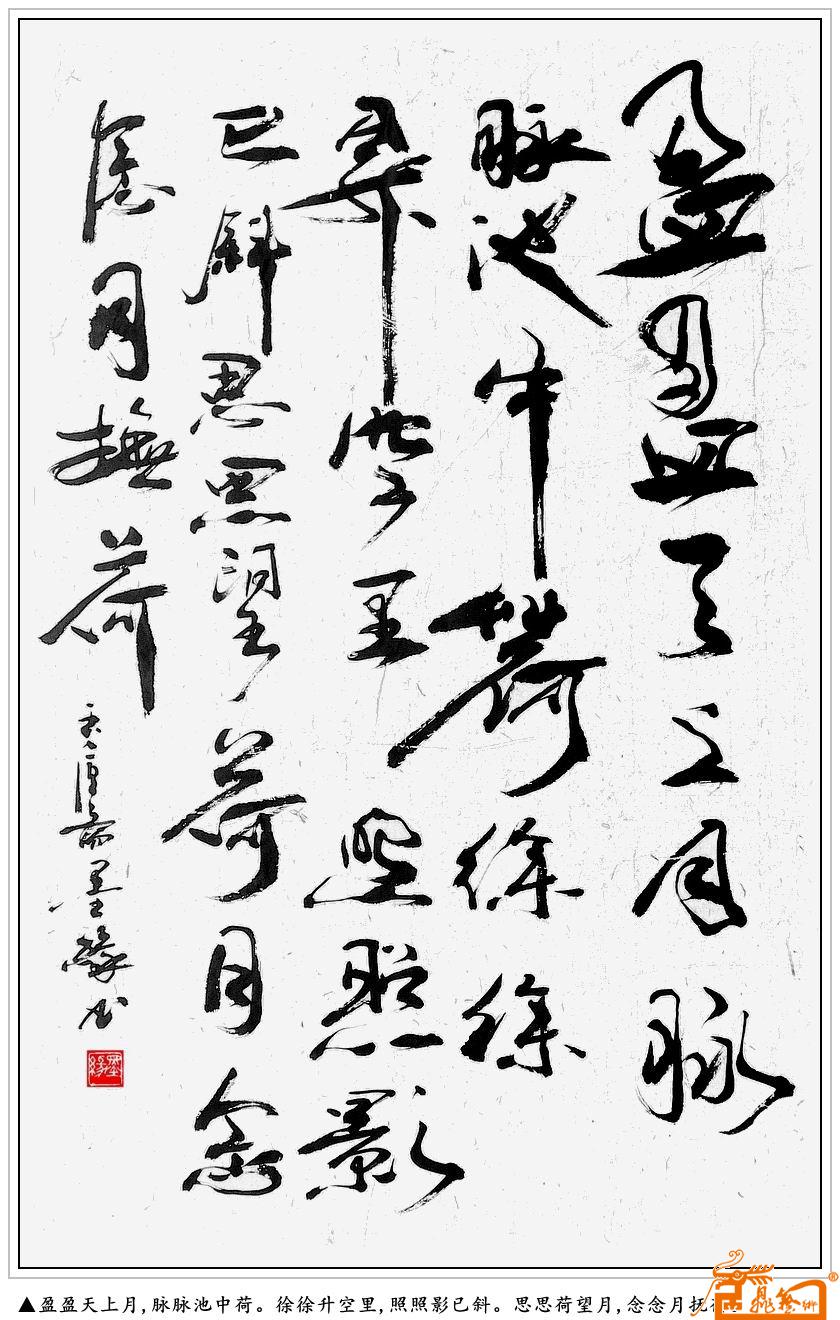 盈盈天上月脉
脉池中荷徐徐
昇空里照照影
已斜思思望荷月念
念月撫荷
斋墨缘书
墨缘
▲盈盈天上月,脉脉池中荷。徐徐升空里,照照影已斜。思思荷望月,念念月抚